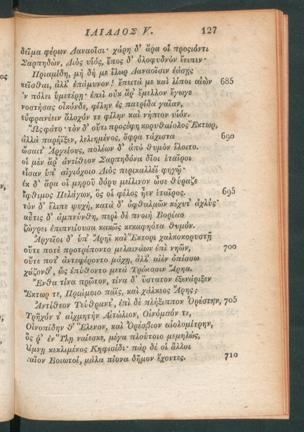 ΙΛΙΑΔΟΣ Ε. 127
δεῖμα φέρων Δαναοῖσι· χάρη δ᾽ ἄρα οἱ προσιόντι
Σαρπηδὼν, Διὸς υἱὸς, ἔπος δ᾽ ὀλοφυδνὸν ἔειπεν·
Πριαμίδη, μὴ δή με ἕλωρ Δαναοῖσιν ἐάσῃς
κεῖσθαι, ἀλλ᾽ ἐπάμυνον! ἔπειτά με καὶ λίποι αἰὼν 685
ἐν πόλει ὑμετέρῃ· ἐπεὶ οὐκ ἄρ᾽ ἔμελλον ἔγωγε
νοστήσας οἶκόνδε, φίλην ἐς πατρίδα γαῖαν,
εὐφρανέειν ἄλοχόν τε φίλην καὶ νήπιον υἱόν.
Ὣς φάτο· τὸν δ᾽ οὔτι προσέφη κορυθαίολος Ἕκτωρ,
ἀλλὰ παρήϊξεν, λελιημένος, ὄφρα τάχιστα 690
ὤσαιτ᾽ Ἀργείους, πολέων δ᾽ ἀπὸ θυμὸν ἕλοιτο.
οἱ μὲν ἄρ᾽ ἀντίθεον Σαρπηδόνα δῖοι ἑταῖροι
εἷσαν ὑπ᾽ αἰγιόχοιο Διὸς περικαλλέϊ φηγῷ·
ἐκ δ᾽ ἄρα οἱ μηροῦ δόρυ μείλινον ὦσε θύραζε
ἴφθιμος Πελάγων, ὅς οἱ φίλος ἦεν ἑταῖρος. 695
τὸν δ᾽ ἔλιπε ψυχὴ, κατὰ δ᾽ ὀφθαλμῶν κέχυτ᾽ ἀχλύς·
αὖτις δ᾽ ἀμπνύνθη, περὶ δὲ πνοιὴ Βορέαο
ζώγρει ἐπιπνείουσα κακῶς κεκαφηότα θυμόν.
Ἀργεῖοι δ᾽ ὑπ᾽ Ἄρηϊ καὶ Ἕκτορι χαλκοκορυστῇ
οὔτε ποτὲ προτρέποντο μελαινάων ἐπὶ νηῶν, 700
οὔτε ποτ᾽ ἀντεφέροντο μάχῃ, ἀλλ᾽ αἰὲν ὀπίσσω
χάζονθ᾽, ὡς ἐπύθοντο μετὰ Τρώεσσιν Ἄρηα.
Ἔνθα τίνα πρῶτον, τίνα δ᾽ ὕστατον ἐξενάριξεν
Ἕκτωρ τε, Πριάμοιο παῖς, καὶ χάλκεος Ἄρης;
Ἀντίθεον Τεύθραντ᾽, ἐπὶ δὲ πλήξιππον Ὀρέστην, 705
Τρῆχόν τ᾽ αἰχμητὴν Αἰτώλιον, Οἰνόμαόν τε,
Οἰνοπίδην θ᾽ Ἕλενον, καὶ Ὀρέσβιον αἰολομίτρην,
ὅς ῥ᾽ ἐν Ὕλῃ ναίεσκε, μέγα πλούτοιο μεμηλὼς,
λίμνῃ κεκλιμένος Κηφισίδι· πὰρ δέ οἱ ἄλλοι
ναῖον Βοιωτοὶ, μάλα πίονα δῆμον ἔχοντες. 710